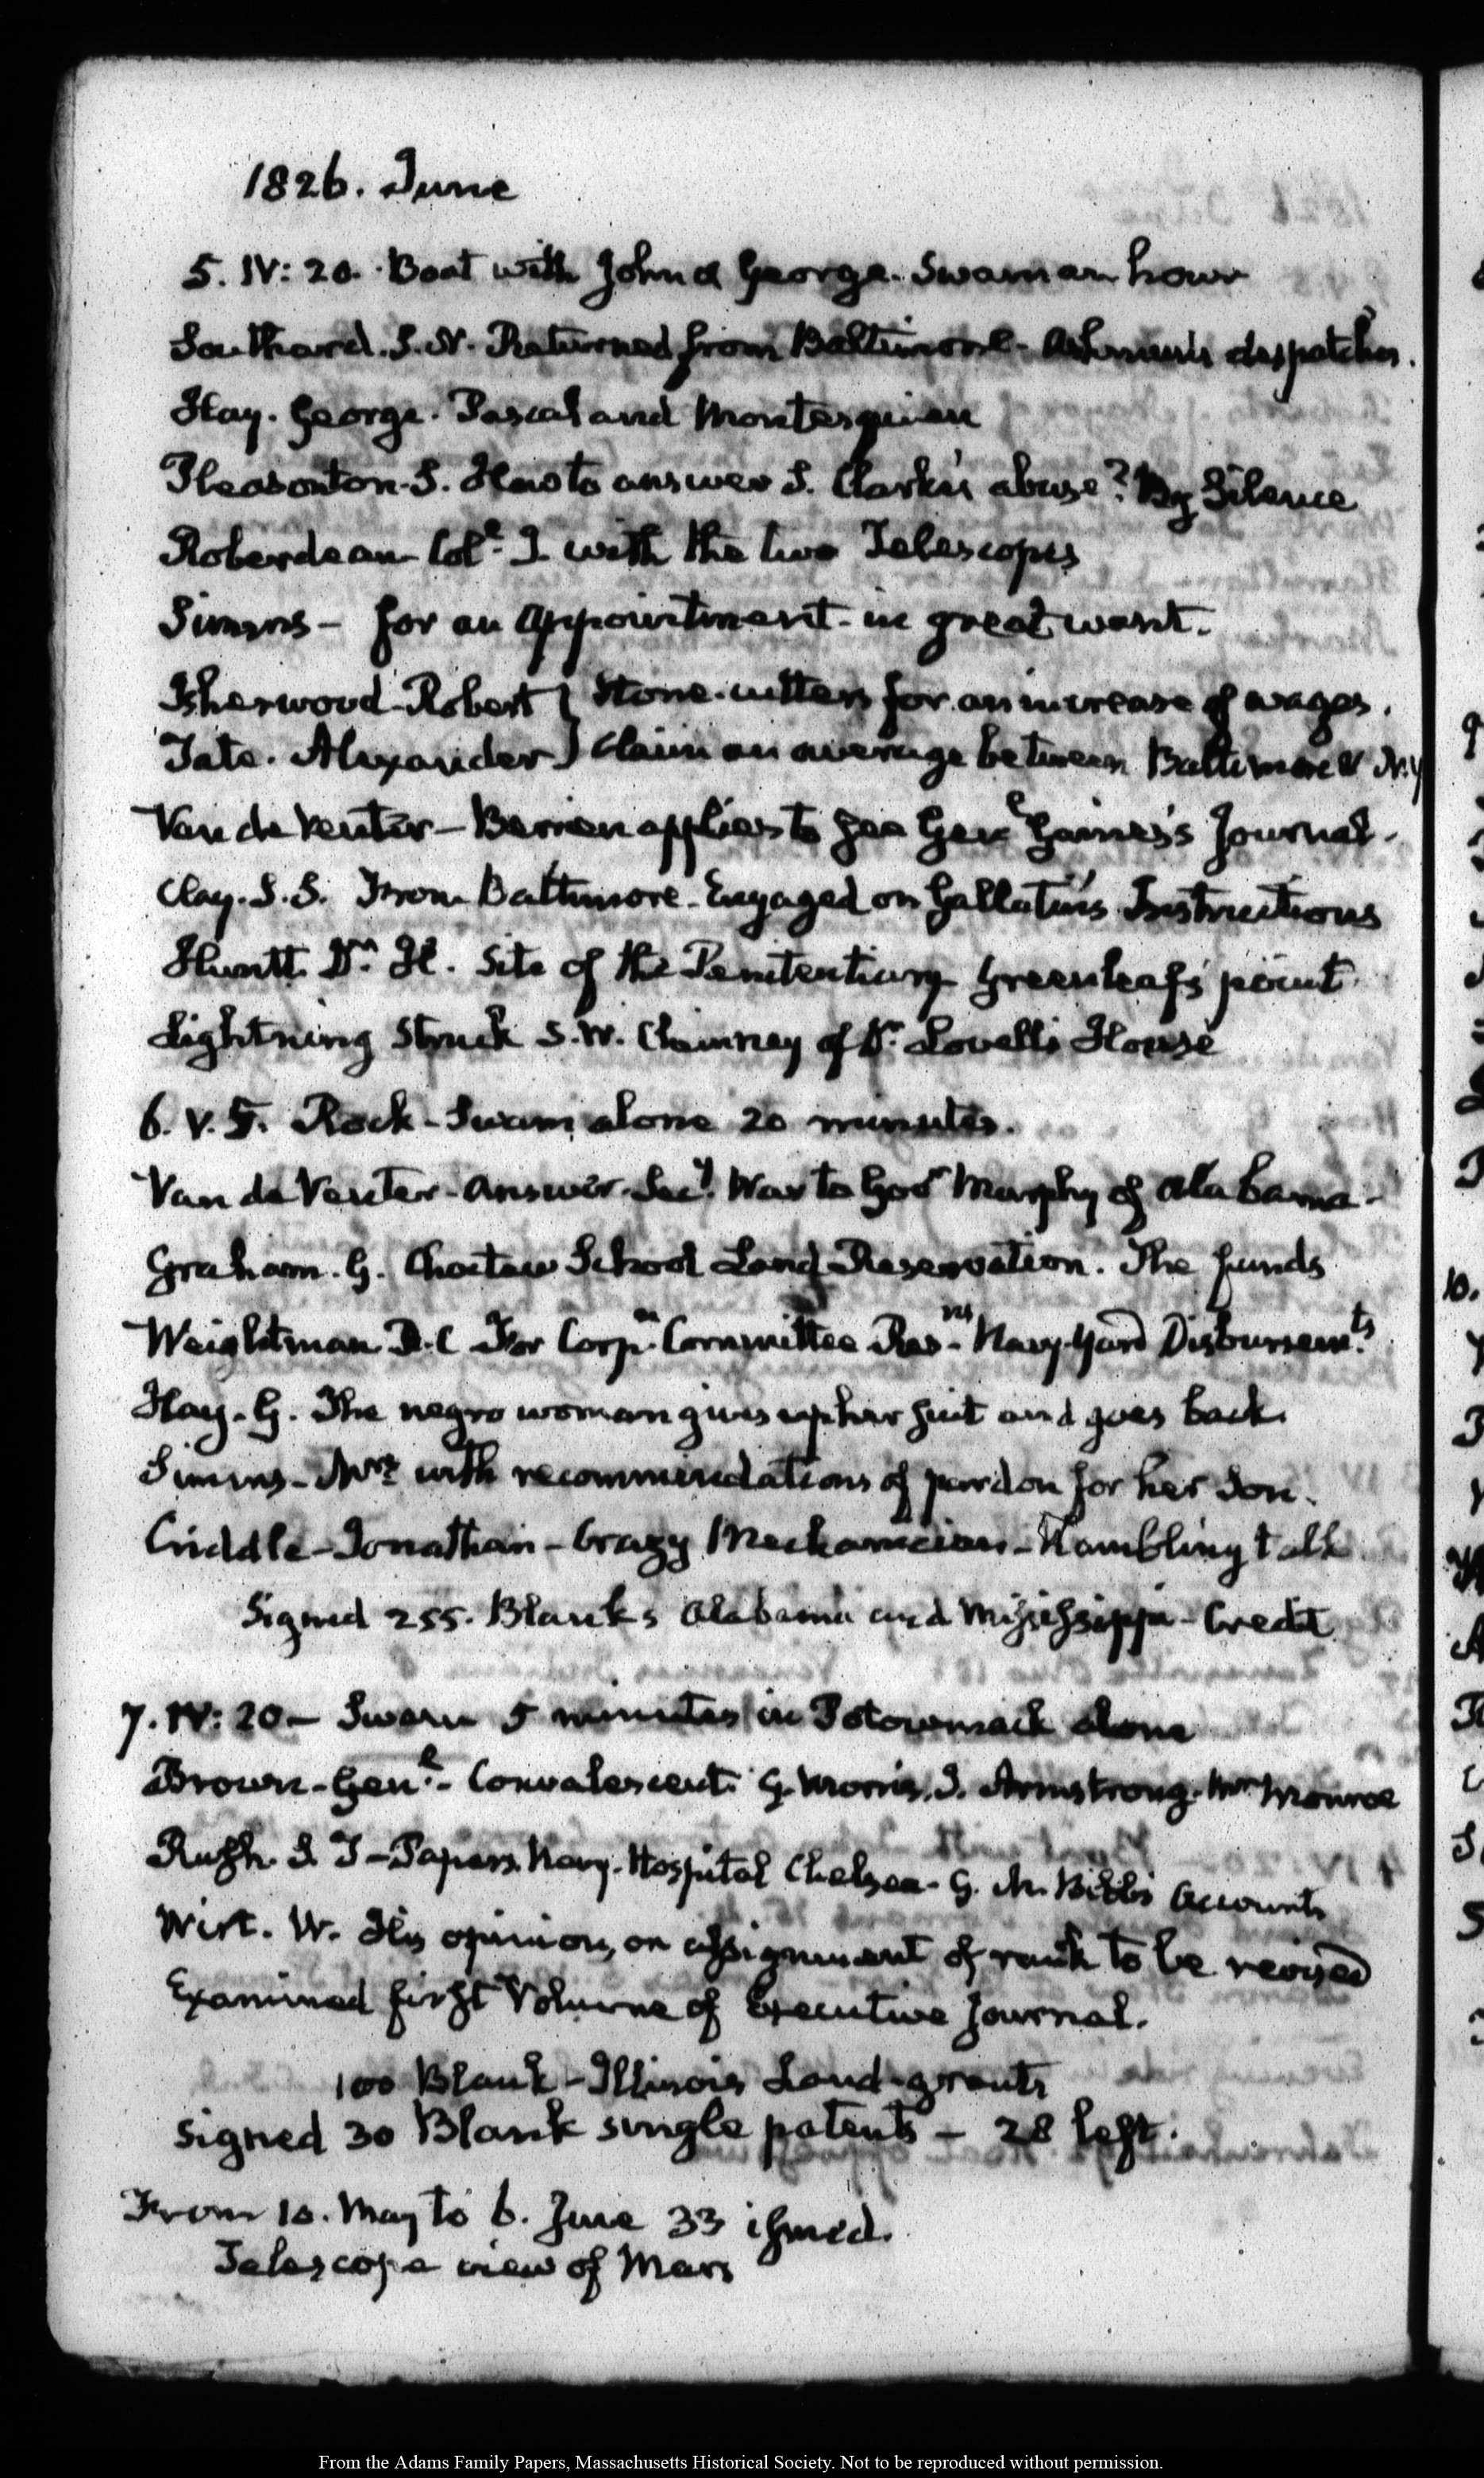 1826. June
5. IV: 20. Boat with John & George. Swam an hour
Southard. S. N. Returned from Baltimore. Ashmun's despatches.
Hay. George. Pascal and Montesquieu
Pleasonton. S. How to answer S. Clark's abuse? By Silence
Roberdeau Col.l I with the two Telescopes
Simms – for an appointment – in great want.
Isherwood Robert } Stone-cutters for an increase of wages.
Tate. Alexander } claim an average between Baltimore & N.Y
Van de Venter – Berrien applies to see Genl Gaines's Journal.
Clay. S. S. From Baltimore. Engaged on Gallatin's Instructions
Huntt Dr. H. Site of the Penitentiary Greenleaf's point
Lightning Struck S. W. Chimney of Dr. Lovell's House
6. V. 5. Rock – Swam alone 20 minutes.
Van de Venter – Answer. Secy. War to Govr Murphy of Alabama.
Graham. G. Choctaw School Land Reservation. The funds
Weightman. R. C For Corpn. Committee Navy Yard Disbursemts
Hay. G. The negro woman gives up her suit and goes back.
Simms – Mrs with recommendations of pardon for her Son.
Criddle – Jonathan – Crazy Mechanician – Rambling talk
Signed 255. Blanks Alabama and Mississippi – Credit
7. IV: 20 – Swam 5 minutes in Potowmack alone
Brown – Genl. – Convalescent. G. Morris. J. Armstrong. Mr Monroe
Rush. S. T – Papers. Navy. Hospital Chelsea. G. M. Bibb's Accounts
Wirt. W. His opinion, on assignment of rank to be revised
Examined first Volume of Executive Journal.
100 Blank – Illinois Land-grants
signed 30 Blank single patents – 28 left.
From 10. May to 6. June 33 issued.
Telescope view of Mars
From the Adams Family Papers, Massachusetts Historical Society. Not to be reproduced without permission.